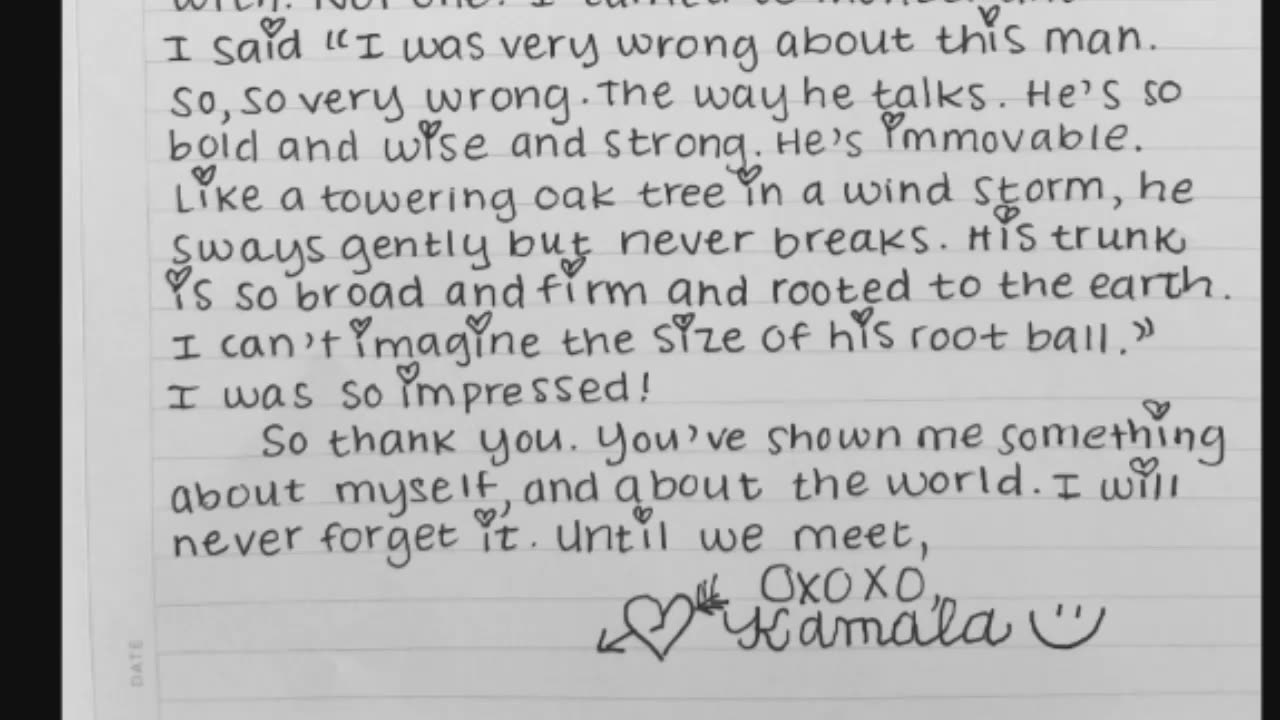 I said “I was very wrong about this man.
So, so very wrong. The way he talks. He's so
bold and wise and strong. He's immovable.
Like a towering oak tree in a wind storm, he
sways gently but never breaks. His trunk
is so broad and firm and rooted to the earth.
I can't imagine the size of his root ball.”
I was so impressed!
So thank you. You've shown me something
about myself, and about the world. I will
never forget it. Until we meet,
OXOXO,
Kamala
DATE